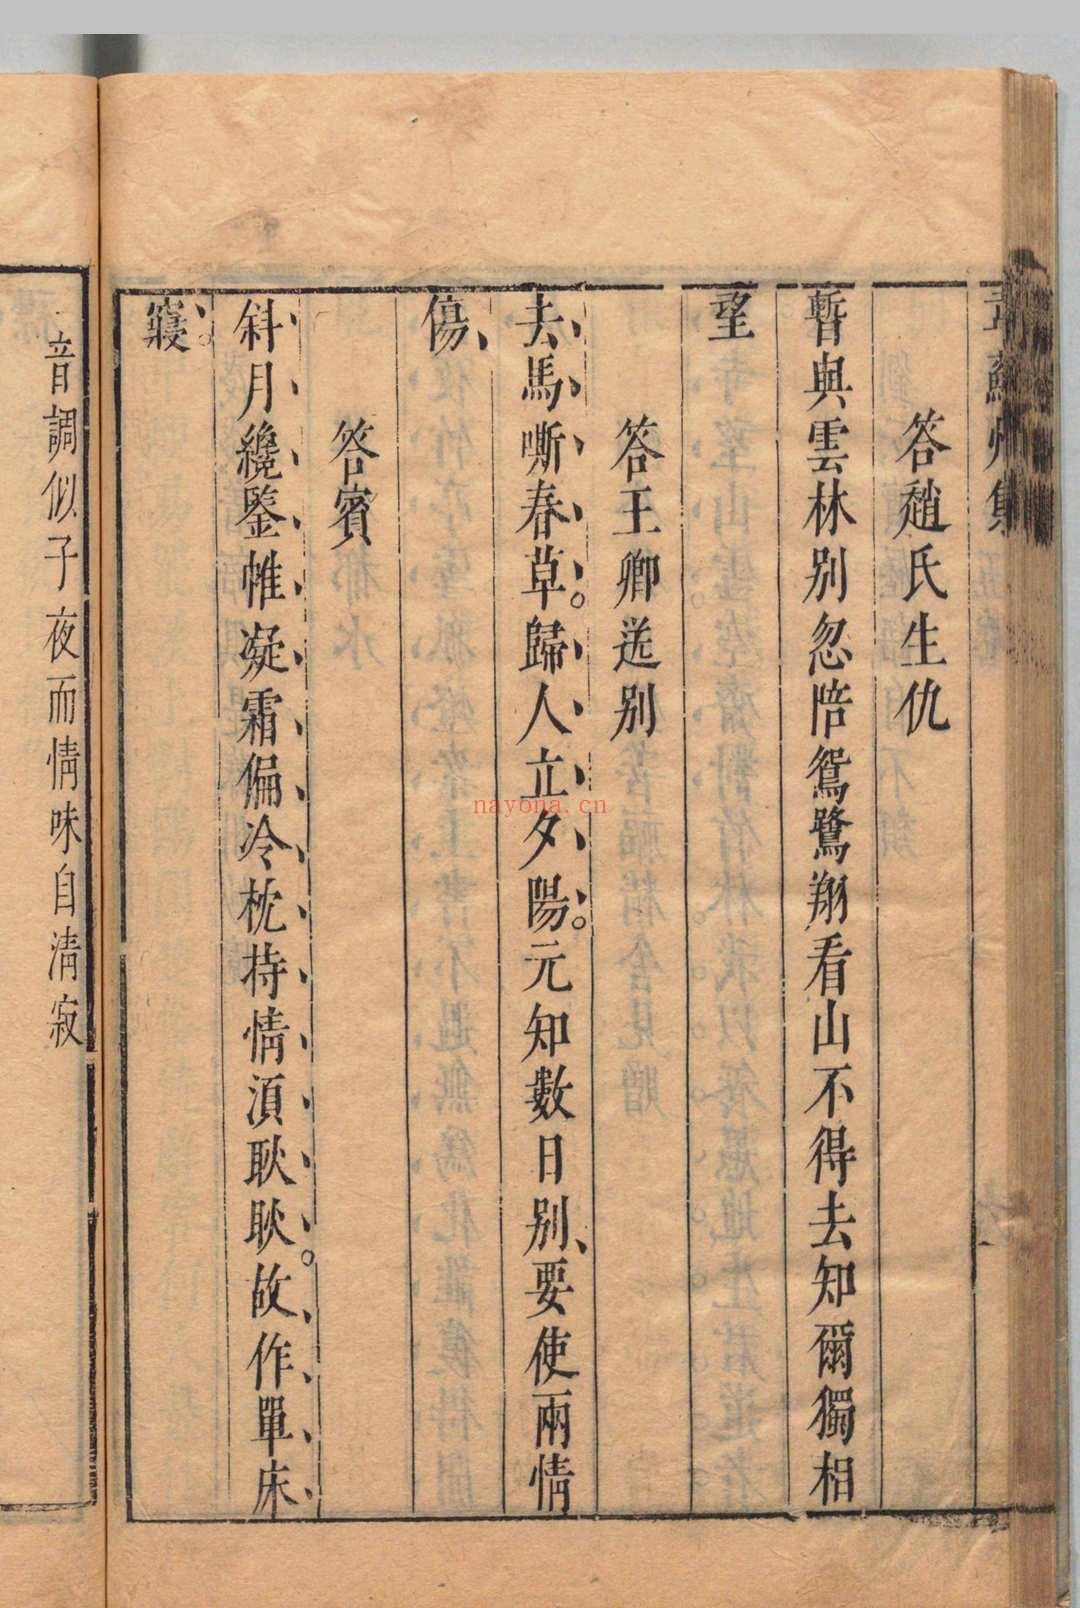 韋蘇州集
答趙氏生伉
暫與雲林別忽陪鴛鷺翔看山不得去知爾獨相
望
答王卿送別
去馬嘶春草。歸人立夕陽。元知數日別、要使兩情
傷、
答賓
斜月纔鑒帷凝霜偏冷枕持情須耿耿。故作單床
寢。
音調似子夜而情味自清寂
nayona.cn